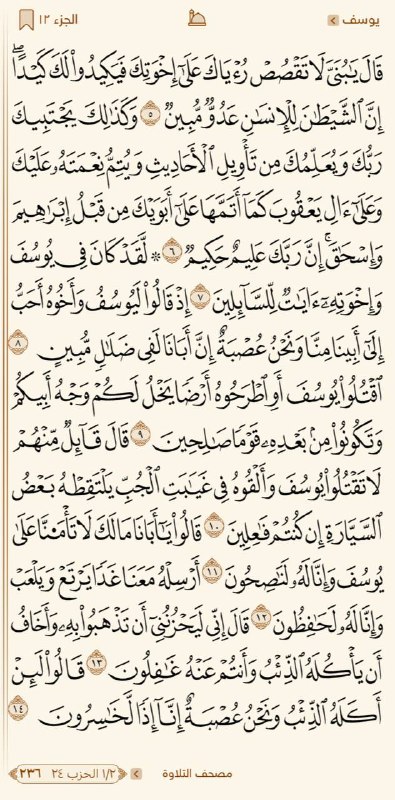 يوسف الجزء ١٢
قَالَ يَٰبُنَيَّ لَا تَقۡصُصۡ رُءۡيَاكَ عَلَىٰٓ إِخۡوَتِكَ فَيَكِيدُواْ لَكَ كَيۡدًاۖ
إِنَّ ٱلشَّيۡطَٰنَ لِلۡإِنسَٰنِ عَدُوّٞ مُّبِينٞ ٥ وَكَذَٰلِكَ يَجۡتَبِيكَ
رَبُّكَ وَيُعَلِّمُكَ مِن تَأۡوِيلِ ٱلۡأَحَادِيثِ وَيُتِمُّ نِعۡمَتَهُۥ عَلَيۡكَ
وَعَلَىٰٓ ءَالِ يَعۡقُوبَ كَمَآ أَتَمَّهَا عَلَىٰٓ أَبَوَيۡكَ مِن قَبۡلُ إِبۡرَٰهِيمَ
وَإِسۡحَٰقَۚ إِنَّ رَبَّكَ عَلِيمٌ حَكِيمٞ ٦ ۞ لَّقَدۡ كَانَ فِي يُوسُفَ
وَإِخۡوَتِهِۦٓ ءَايَٰتٞ لِّلسَّآئِلِينَ ٧ إِذۡ قَالُواْ لَيُوسُفُ وَأَخُوهُ أَحَبُّ
إِلَىٰٓ أَبِينَا مِنَّا وَنَحۡنُ عُصۡبَةٌ إِنَّ أَبَانَا لَفِي ضَلَٰلٖ مُّبِينٍ ٨
ٱقۡتُلُواْ يُوسُفَ أَوِ ٱطۡرَحُوهُ أَرۡضٗا يَخۡلُ لَكُمۡ وَجۡهُ أَبِيكُمۡ
وَتَكُونُواْ مِنۢ بَعۡدِهِۦ قَوۡمٗا صَٰلِحِينَ ٩ قَالَ قَآئِلٞ مِّنۡهُمۡ
لَا تَقۡتُلُواْ يُوسُفَ وَأَلۡقُوهُ فِي غَيَٰبَتِ ٱلۡجُبِّ يَلۡتَقِطۡهُ بَعۡضُ
ٱلسَّيَّارَةِ إِن كُنتُمۡ فَٰعِلِينَ ١٠ قَالُواْ يَٰٓأَبَانَا مَالَكَ لَا تَأۡمَ۬نَّا عَلَىٰ
يُوسُفَ وَإِنَّا لَهُۥ لَنَٰصِحُونَ ١١ أَرۡسِلۡهُ مَعَنَا غَدٗا يَرۡتَعۡ وَيَلۡعَبۡ
وَإِنَّا لَهُۥ لَحَٰفِظُونَ ١٢ قَالَ إِنِّي لَيَحۡزُنُنِيٓ أَن تَذۡهَبُواْ بِهِۦ وَأَخَافُ
أَن يَأۡكُلَهُ ٱلذِّئۡبُ وَأَنتُمۡ عَنۡهُ غَٰفِلُونَ ١٣ قَالُواْ لَئِنۡ
أَكَلَهُ ٱلذِّئۡبُ وَنَحۡنُ عُصۡبَةٌ إِنَّآ إِذٗا لَّخَٰسِرُونَ ١٤
مصحف التلاوة ١/٢ الحزب ٢٤ ٢٣٦